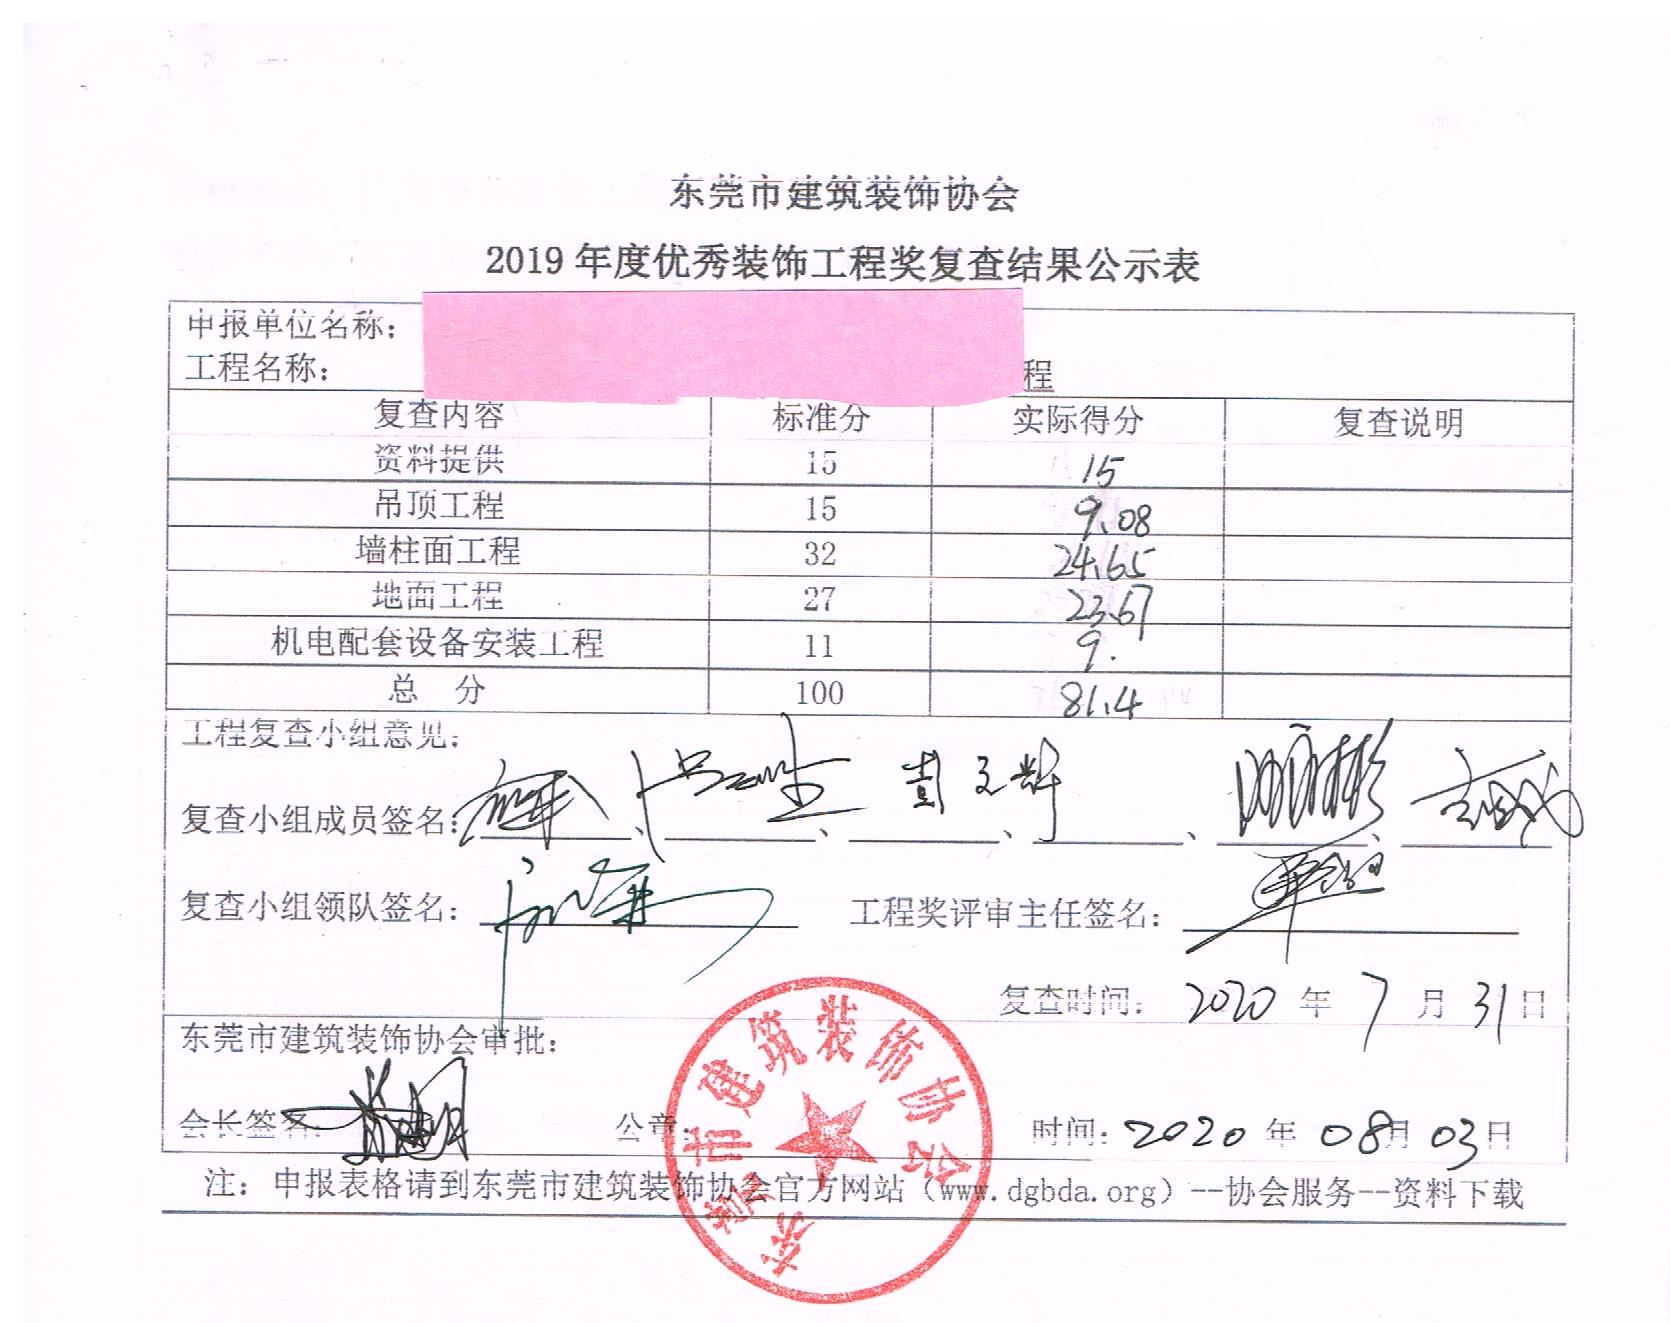 东莞市建筑装饰协会
2019 年度优秀装饰工程奖复查结果公示表
申报单位名称：
工程名称： 程
复查内容 标准分 实际得分 复查说明
资料提供 15 15
吊顶工程 15 9.08
墙柱面工程 32 24.65
地面工程 27 23.67
机电配套设备安装工程 11 9.
总 分 100 81.4
工程复查小组意见：
复查小组成员签名： 、 、 彭文辉 、 、 、
复查小组领队签名： 工程奖评审主任签名：
复查时间： 2020 年 7 月 31 日
东莞市建筑装饰协会审批：
会长签名： 公章： 时间： 2020 年 08 月 03 日
东莞市建筑装饰协会
注：申报表格请到东莞市建筑装饰协会官方网站（www.dgbda.org）--协会服务--资料下载